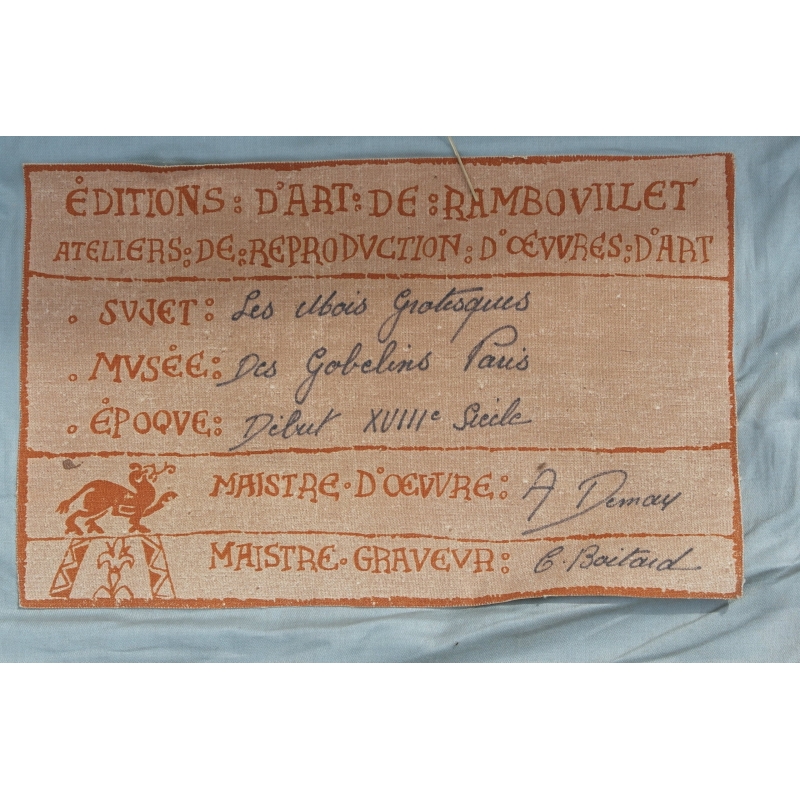 ÉDITIONS: D'ART: DE: RAMBOVILLET
ATELIERS: DE: REPRODVCTION: D'ŒVVRES: D'ART
SVJET: Les Mois Grotesques
MVSÉE: Des Gobelins Paris
ÉPOQVE: Début XVIIIe Siècle
MAISTRE·D'ŒVVRE: A Demay
MAISTRE·GRAVEVR: C. Boitard